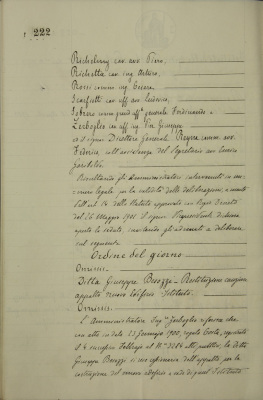 222
Richelmy cav. avv. Piero,
Richetta cav. ing. Arturo,
Rossi comm. ing. Cesare,
Scarfiotti cav. uff. avv. Lodovico,
Sobrero comm. generale Ferdinando e
Zerboglio cav. uff. ing. Pier Giuseppe
ed il signor Direttore Generale Regen comm. avv.
Federico coll'assistenza del Segretario cav.
Risultando gli Amministratori intervenuti in nu-
mero legale per la validità delle deliberazioni, a mente
dell'art. dello Statuto approvato con Regio Decreto
del 26 Maggio 1901 il signor Presidente dichiara
aperta la seduta, invitando gli adunati a deliberare
sul seguente
Ordine del giorno
Omissis.
Ditta Giuseppe Bosazza - Restituzione cauzione
appalto nuovo edificio Istituto.
Omissis.
L'Amministratore Ing.re Zerboglio riferisce che
con atto in data 23 Gennaio 1900, rogato Costa, registrato
il 6 successivo Febbraio al N.° atti pubblici, la ditta
Giuseppe si rese dell'appalto per la
costruzione del nuovo edificio a sede di quest'Istituto